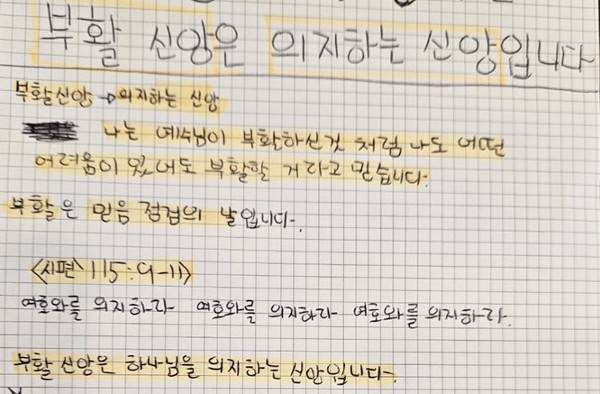 부활 신앙은 의지하는 신앙입니다
부활신앙 → 의지하는 신앙
나는 예수님이 부활하신것 처럼 나도 어떤
어려움이 있내도 부활할 거라고 믿습니다.
부활은 믿음 점검의 날입니다.
<시편 115:9-11>
여호와를 의지하라 여호와를 의지하라 여호와를 의지하라.
부활 신앙은 하나님을 의지하는 신앙입니다.